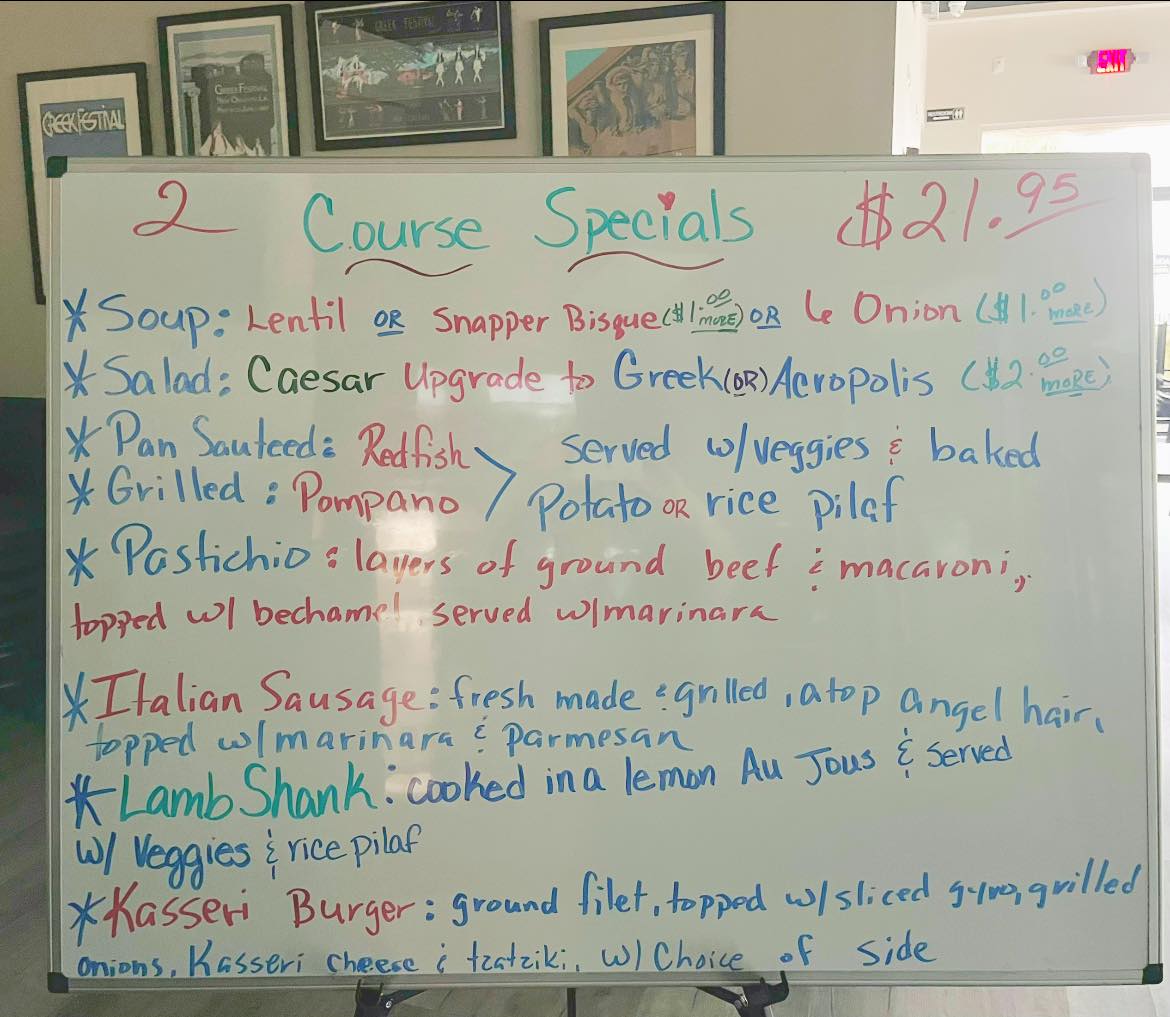 GREEK FESTIVAL
GREEK FESTIVAL
NEW ORLEANS, LA.
GREEK FESTIVAL
EXIT
2 Course Specials $21.95
* Soup: Lentil OR Snapper Bisque ($1.00 MORE) OR Onion ($1.00 MORE)
* Salad: Caesar Upgrade to Greek (OR) Acropolis ($2.00 MORE)
* Pan Sauteed: Redfish > served w/veggies & baked
* Grilled: Pompano Potato OR rice pilaf
* Pastichio: layers of ground beef & macaroni,
topped w/ bechamel, served w/marinara
* Italian Sausage: fresh made & grilled, atop angel hair,
topped w/marinara & parmesan
* Lamb Shank: cooked in a lemon Au Jous & served
w/ Veggies & rice pilaf
* Kasseri Burger: ground filet, topped w/sliced gyro, grilled
onions, Kasseri cheese & tzatziki, w/ Choice of side